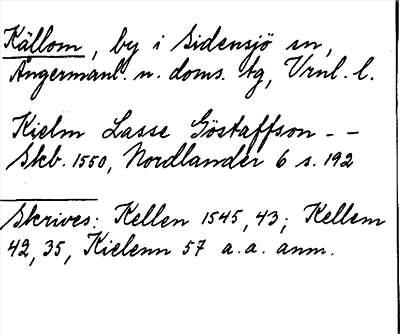 Källom, by i Sidensjö sn,
Ångermanl. n. doms. tg, Vrnl. l.
Kielm Lasse Göstaffson - -
Skb. 1550, Nordlander 6 s. 192
Skrives: Kellen 1545, 43; Kellem
42, 35, Kielenn 57 a. a. anm.